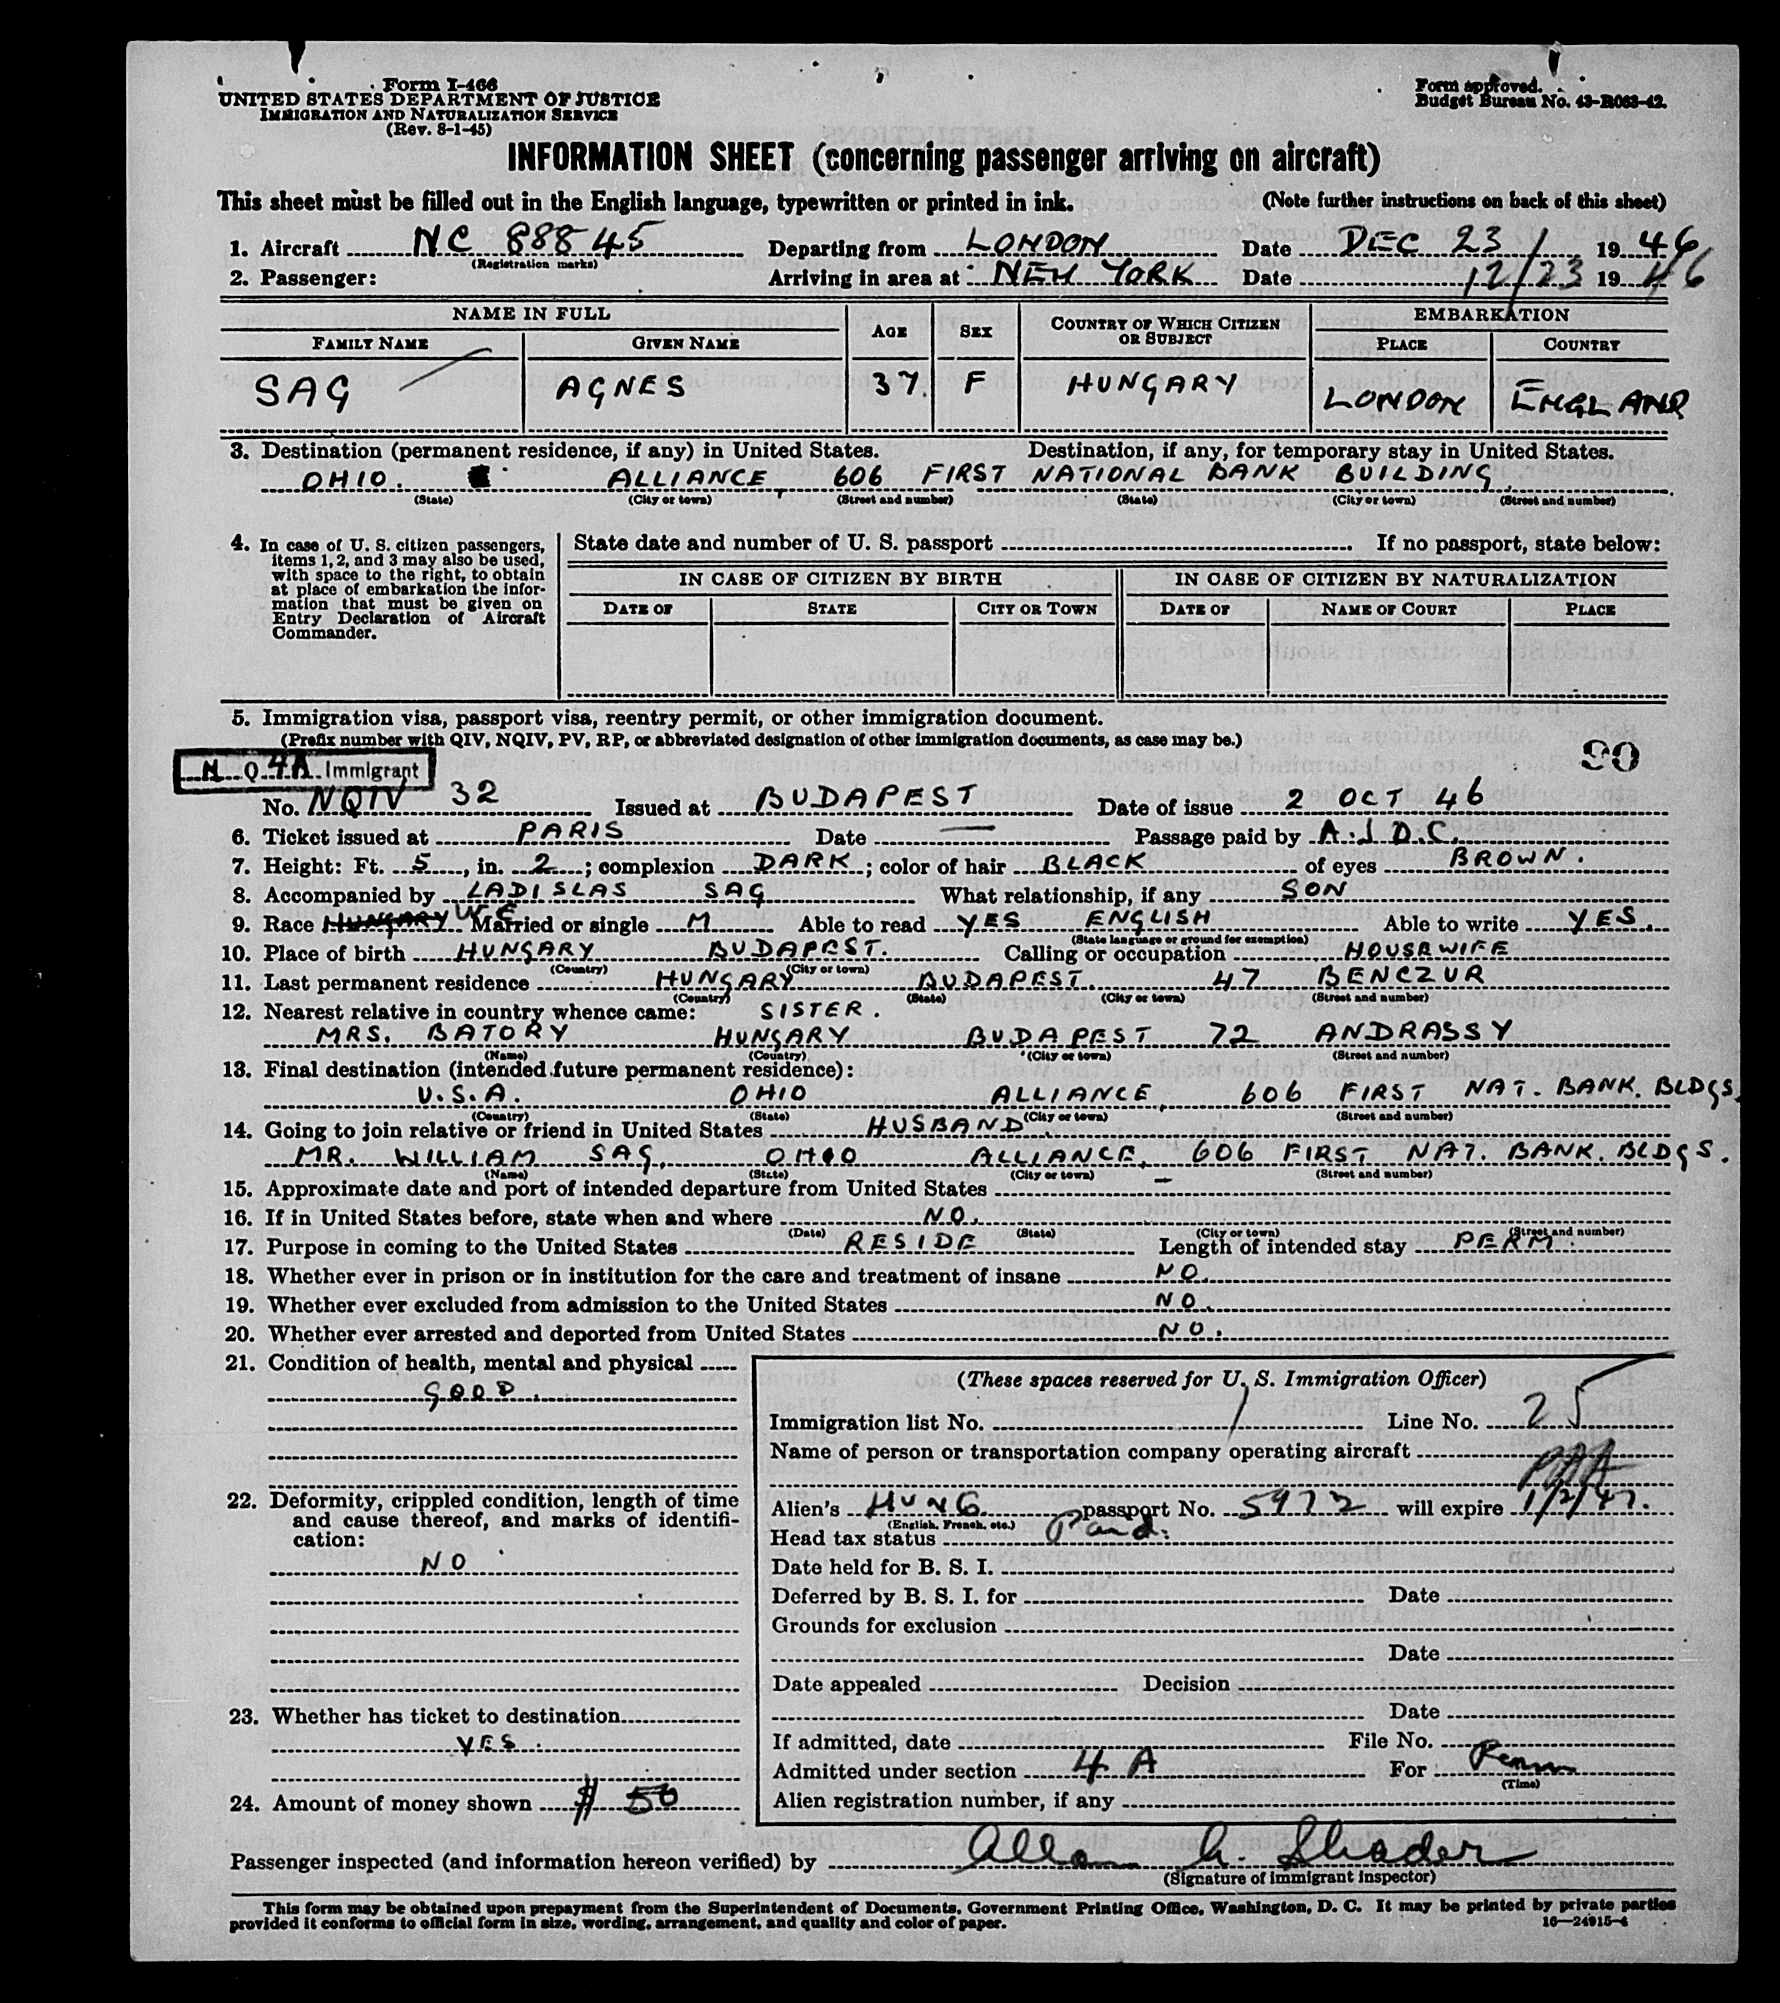 Form I-466
UNITED STATES DEPARTMENT OF JUSTICE
IMMIGRATION AND NATURALIZATION SERVICE
(Rev. 8-1-45)
Form approved.
Budget Bureau No. 43-R063-42.
INFORMATION SHEET (concerning passenger arriving on aircraft)
This sheet must be filled out in the English language, typewritten or printed in ink. (Note further instructions on back of this sheet)
1. Aircraft NC 88845 Departing from LONDON Date DEC 23 1946
(Registration marks)
2. Passenger: Arriving in area at NEW YORK Date 12/23 1946
NAME IN FULL AGE SEX COUNTRY OF WHICH CITIZEN OR SUBJECT EMBARKATION
FAMILY NAME GIVEN NAME PLACE COUNTRY
SAG AGNES 37. F HUNGARY LONDON ENGLAND
3. Destination (permanent residence, if any) in United States. Destination, if any, for temporary stay in United States.
OHIO. ALLIANCE, 606 FIRST NATIONAL BANK BUILDING
(State) (City or town) (Street and number) (State) (City or town) (Street and number)
4. In case of U. S. citizen passengers, items 1, 2, and 3 may also be used, with space to the right, to obtain at place of embarkation the information that must be given on Entry Declaration of Aircraft Commander.
State date and number of U. S. passport If no passport, state below:
IN CASE OF CITIZEN BY BIRTH IN CASE OF CITIZEN BY NATURALIZATION
DATE OF STATE CITY OR TOWN DATE OF NAME OF COURT PLACE
5. Immigration visa, passport visa, reentry permit, or other immigration document.
(Prefix number with QIV, NQIV, PV, RP, or abbreviated designation of other immigration documents, as case may be.)
90
N Q 4A Immigrant
No. NQIV 32 Issued at BUDAPEST Date of issue 2 OCT 46
6. Ticket issued at PARIS Date — Passage paid by A.J.D.C.
7. Height: Ft. 5, in. 2; complexion DARK; color of hair BLACK of eyes BROWN.
8. Accompanied by LADISLAS SAG What relationship, if any SON
9. Race HUNGARY WE Married or single M Able to read YES ENGLISH Able to write YES.
(State language or ground for exemption)
10. Place of birth HUNGARY BUDAPEST. Calling or occupation HOUSEWIFE
(Country) (City or town)
11. Last permanent residence HUNGARY BUDAPEST. 47 BENCZUR
(Country) (State) (City or town) (Street and number)
12. Nearest relative in country whence came: SISTER.
MRS. BATORY HUNGARY BUDAPEST 72 ANDRASSY
(Name) (Country) (City or town) (Street and number)
13. Final destination (intended future permanent residence):
U.S.A. OHIO ALLIANCE, 606 FIRST NAT. BANK. BLDGS.
(Country) (State) (City or town) (Street and number)
14. Going to join relative or friend in United States HUSBAND
MR. WILLIAM SAG, OHIO ALLIANCE, 606 FIRST NAT. BANK. BLDGS.
(Name) (State) (City or town) (Street and number)
15. Approximate date and port of intended departure from United States —
16. If in United States before, state when and where NO.
(Date) (State) (City or town) (Street and number)
17. Purpose in coming to the United States RESIDE Length of intended stay PERM.
18. Whether ever in prison or in institution for the care and treatment of insane NO.
19. Whether ever excluded from admission to the United States NO.
20. Whether ever arrested and deported from United States NO.
21. Condition of health, mental and physical
GOOD.
22. Deformity, crippled condition, length of time and cause thereof, and marks of identification:
NO
23. Whether has ticket to destination
YES.
24. Amount of money shown $ 50
(These spaces reserved for U. S. Immigration Officer)
Immigration list No. 1 Line No. 25
Name of person or transportation company operating aircraft
PAA
Alien's HUNG. passport No. 5972 will expire 1/2/47.
(English, French, etc.)
Head tax status Paid.
Date held for B. S. I.
Deferred by B. S. I. for Date
Grounds for exclusion
Date
Date appealed Decision
Date
If admitted, date File No.
Admitted under section 4 A For Perm
(Time)
Alien registration number, if any
Passenger inspected (and information hereon verified) by Allan G. Shader
(Signature of immigrant inspector)
This form may be obtained upon prepayment from the Superintendent of Documents, Government Printing Office, Washington, D. C. It may be printed by private parties
provided it conforms to official form in size, wording, arrangement, and quality and color of paper. 16—24915-4